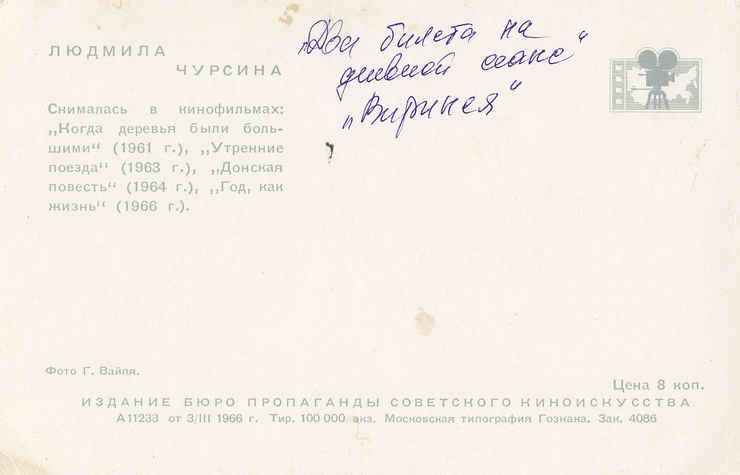 ЛЮДМИЛА
ЧУРСИНА
Снималась в кинофильмах:
„Когда деревья были боль-
шими“ (1961 г.), „Утренние
поезда“ (1963 г.), „Донская
повесть“ (1964 г.), „Год, как
жизнь“ (1966 г.).
„Два билета на
дневной сеанс“
„Виринея“
Фото Г. Вайля.
Цена 8 коп.
ИЗДАНИЕ БЮРО ПРОПАГАНДЫ СОВЕТСКОГО КИНОИСКУССТВА
А11233 от 3/III 1966 г. Тир. 100 000 экз. Московская типография Гознака. Зак. 4086